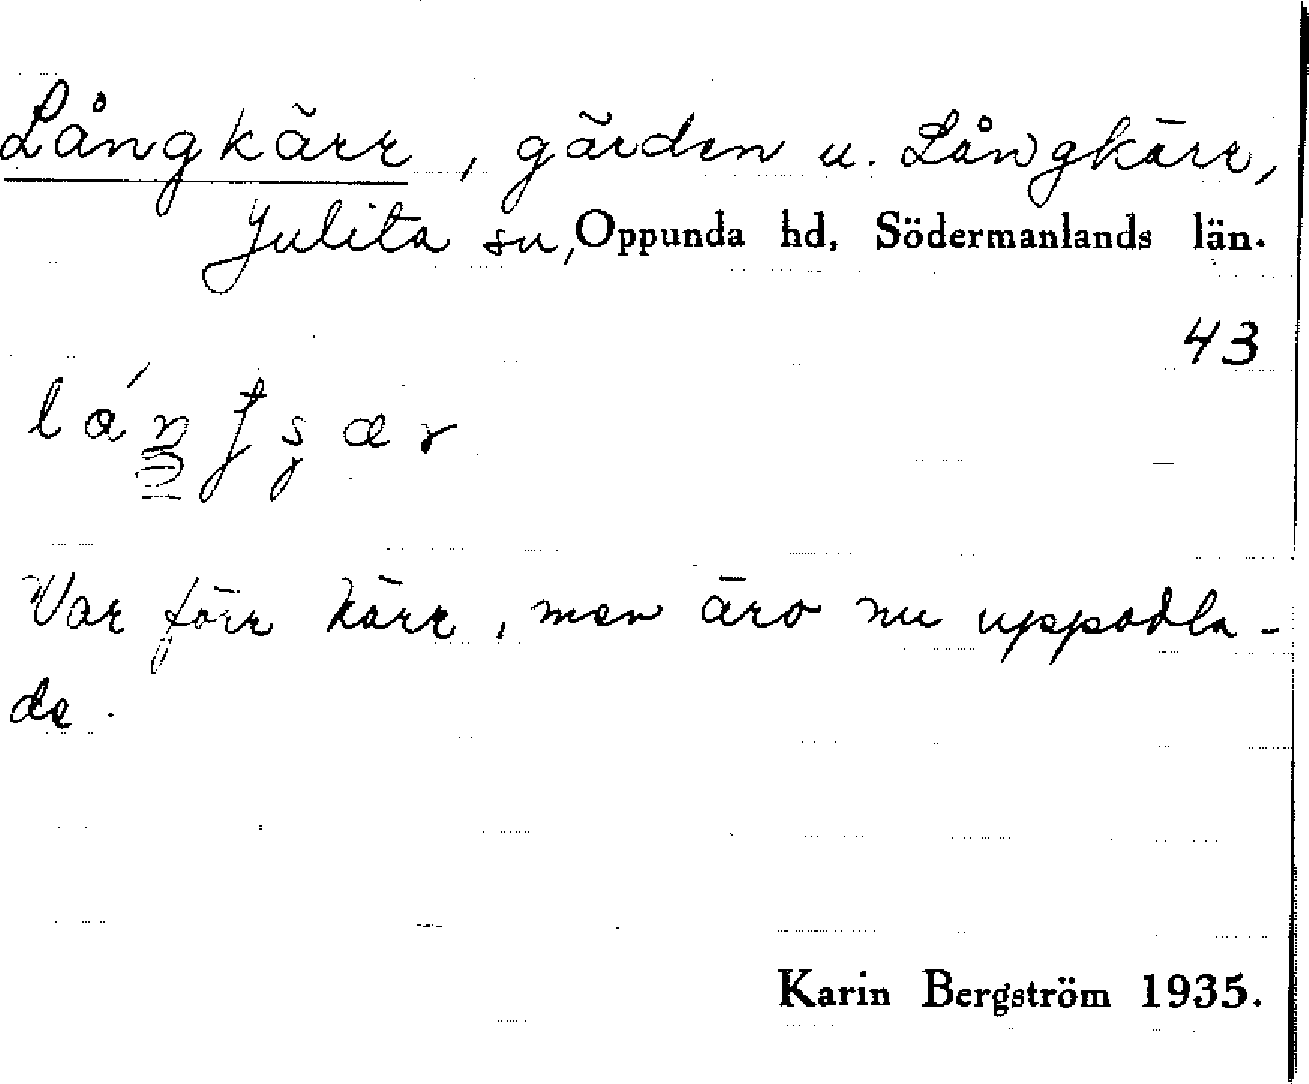 Långkärr, gärden u. Långkärr,
Julita sn, Oppunda hd, Södermanlands län.
43
Var förr kärr, men äro nu uppodla-
de.
Karin Bergström 1935.